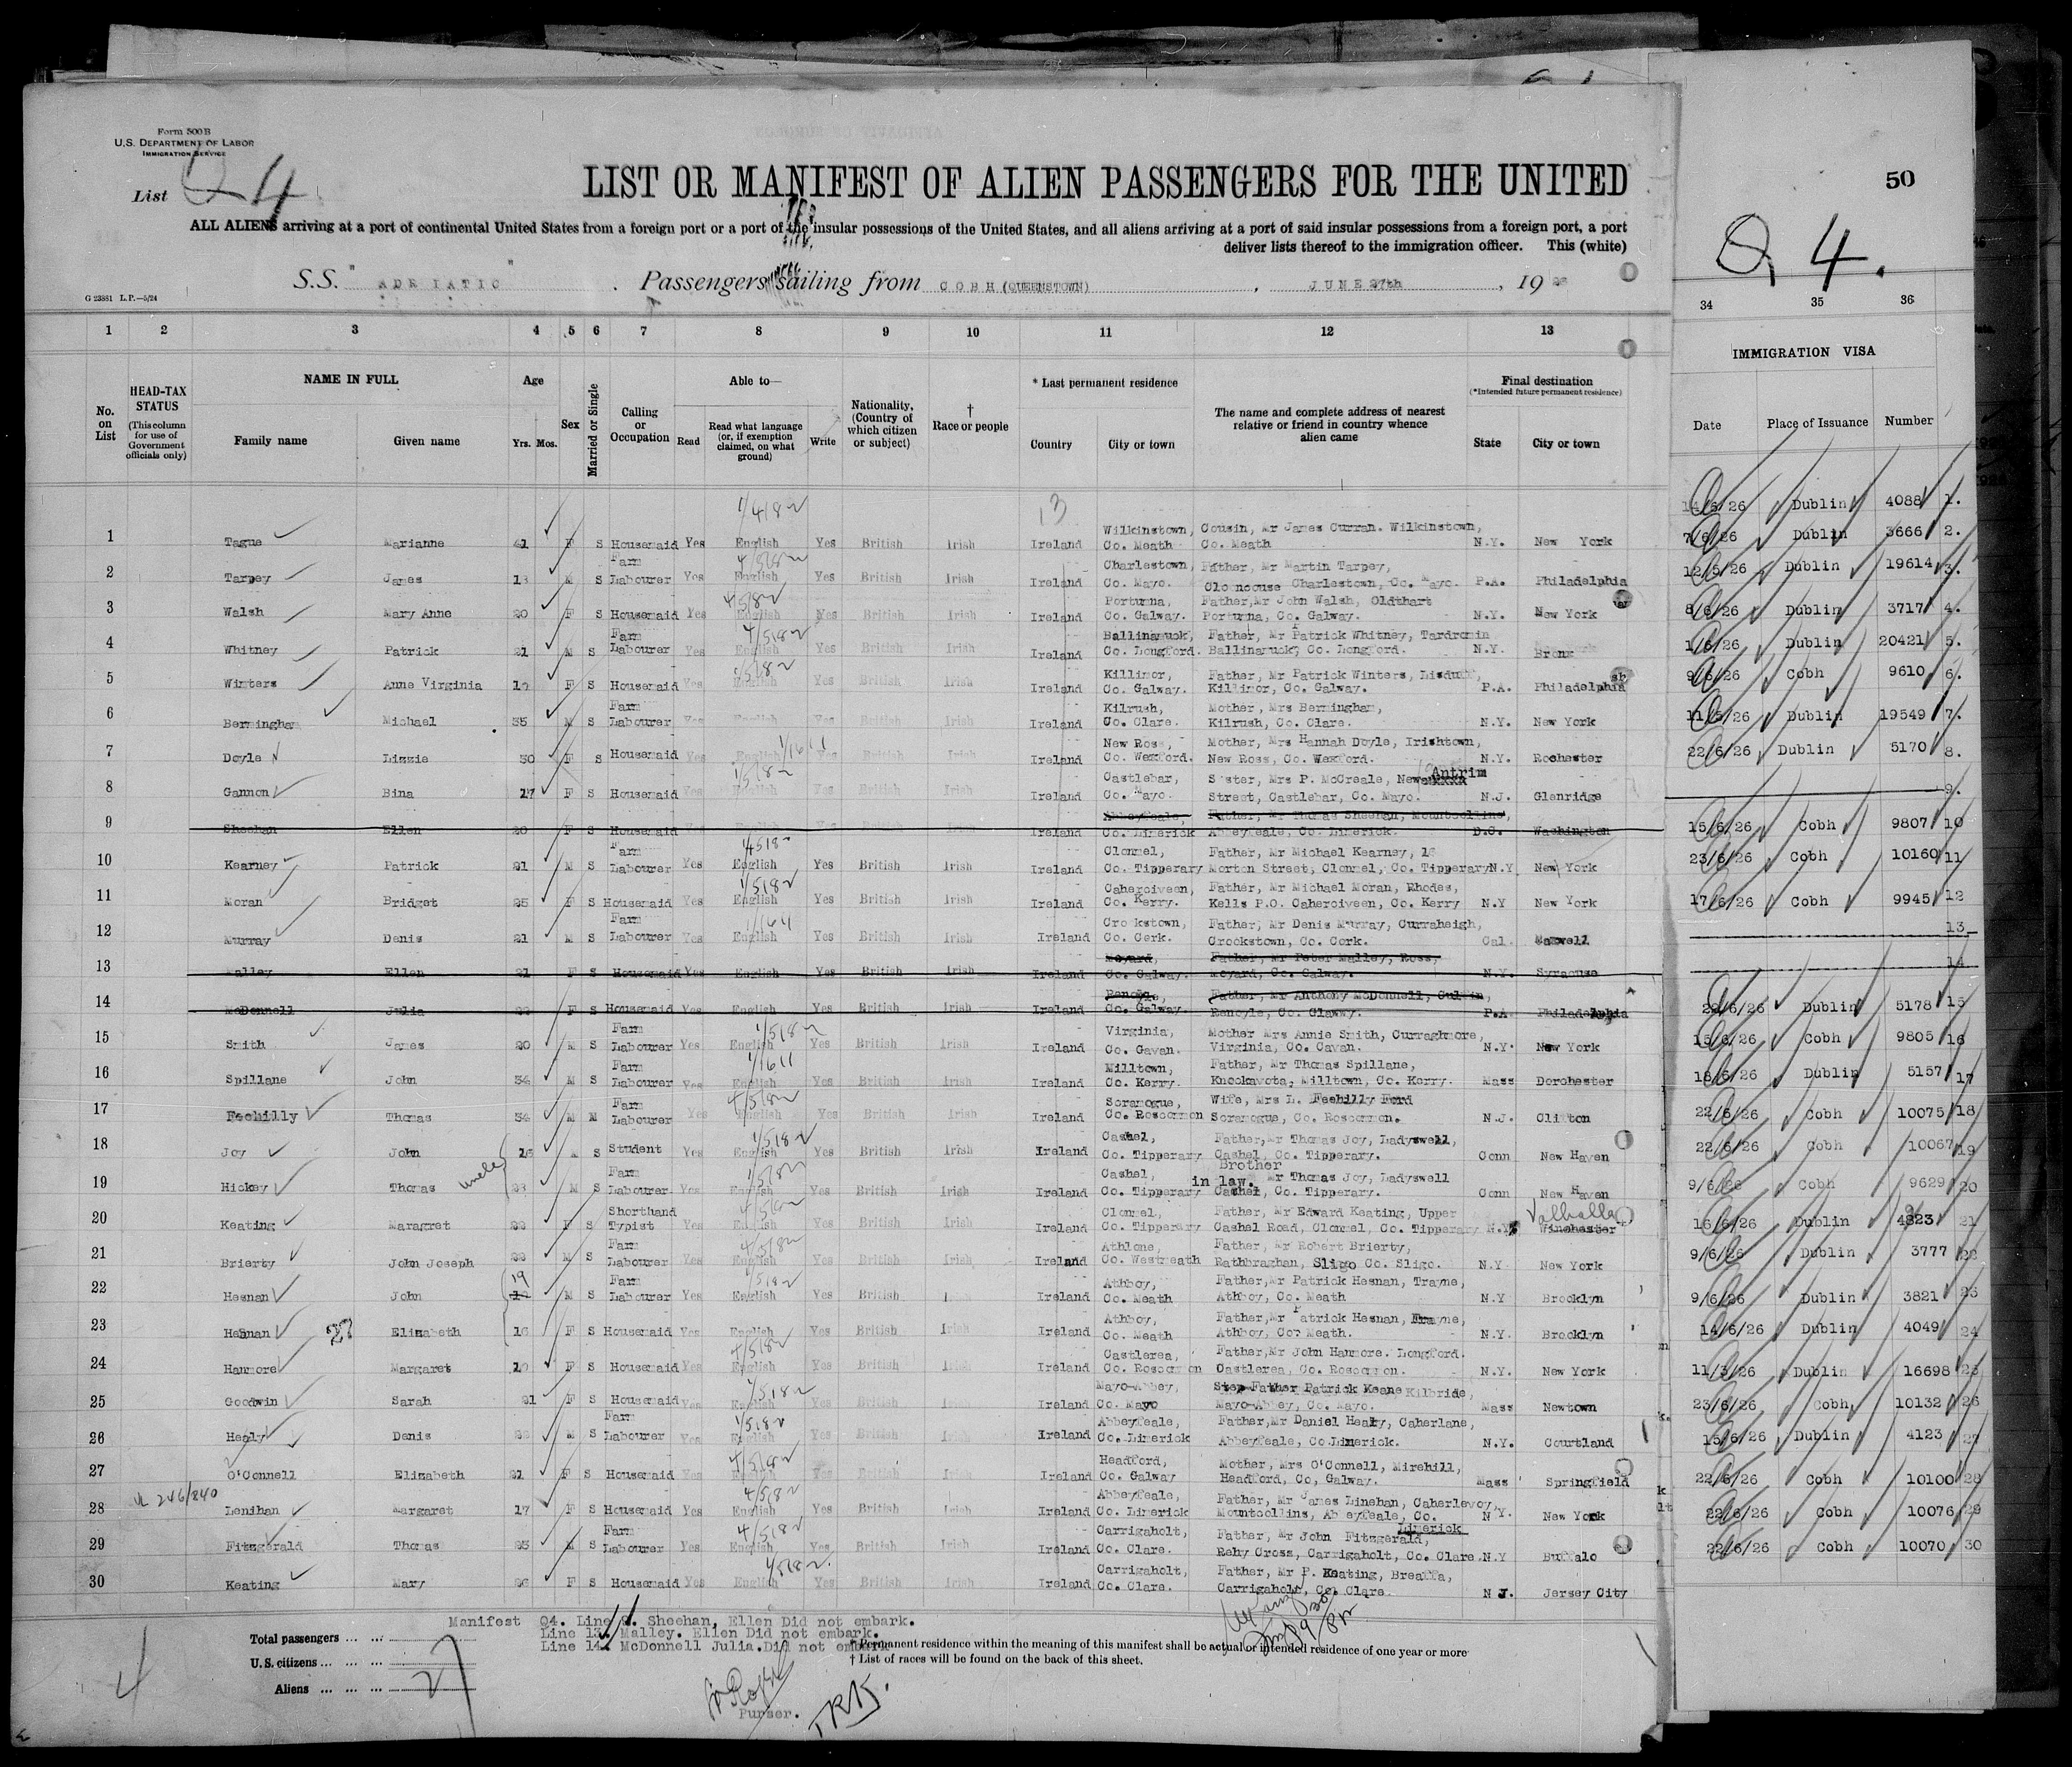 Form 500B
U.S. DEPARTMENT OF LABOR
IMMIGRATION SERVICE
List Q 4
LIST OR MANIFEST OF ALIEN PASSENGERS FOR THE UNITED
ALL ALIENS arriving at a port of continental United States from a foreign port or a port of the insular possessions of the United States, and all aliens arriving at a port of said insular possessions from a foreign port, a port
deliver lists thereof to the immigration officer. This (white)
S.S. "ADRIATIC". Passengers sailing from COBH (QUEENSTOWN), JUNE 27th, 19 26
G 23881 L.P.—5/24
50
Q 4.
1 2 3 4 5 6 7 8 9 10 11 12 13 34 35 36
No. on List
HEAD-TAX STATUS (This column for use of Government officials only)
NAME IN FULL
Family name Given name
Age Yrs. Mos.
Sex
Married or Single
Calling or Occupation
Able to—
Read Read what language (or, if exemption claimed, on what ground) Write
Nationality, (Country of which citizen or subject)
† Race or people
* Last permanent residence
Country City or town
The name and complete address of nearest relative or friend in country whence alien came
Final destination
(*Intended future permanent residence)
State City or town
IMMIGRATION VISA
Date Place of Issuance Number
1 Tague Marianne 41 F S Housemaid Yes English Yes British Irish Ireland Wilkinstown, Co. Meath Cousin, Mr James Curran. Wilkinstown, Co. Meath N.Y. New York
2 Tarpey James 18 M S Farm Labourer Yes English Yes British Irish Ireland Charlestown, Co. Mayo. Father, Mr Martin Tarpey, Charlestown, Co. Mayo. P.A. Philadelphia
3 Walsh Mary Anne 20 F S Housemaid Yes English Yes British Irish Ireland Portumna, Co. Galway. Father, Mr John Walsh, Oldthart Portumna, Co. Galway. N.Y. New York
4 Whitney Patrick 21 M S Farm Labourer Yes English Yes British Irish Ireland Ballinamuck, Co. Longford. Father, Mr Patrick Whitney, Tardromin Ballinamuck, Co. Longford. N.Y. Bronx
5 Winters Anne Virginia 19 F S Housemaid Yes English Yes British Irish Ireland Killimor, Co. Galway. Father, Mr Patrick Winters, Killimor, Co. Galway. P.A. Philadelphia
6 Bermingham Michael 35 M S Farm Labourer Yes English Yes British Irish Ireland Kilrush, Co. Clare. Mother, Mrs Bermingham, Kilrush, Co. Clare. N.Y. New York
7 Doyle Lizzie 30 F S Housemaid Yes English Yes British Irish Ireland New Ross, Co. Wexford. Mother, Mrs Hannah Doyle, Irishtown, New Ross, Co. Wexford. N.Y. Rochester
8 Gannon Bina 27 F S Housemaid Yes English Yes British Irish Ireland Castlebar, Co. Mayo. Sister, Mrs P. McCreale, Antrim Street, Castlebar, Co. Mayo. N.J. Glenridge
9 Sheehan Ellen 20 F S Housemaid Ireland Abbeyfeale, Co. Limerick Father, Mr Thomas Sheehan, Mountcollins, Abbeyfeale, Co. Limerick. D.C. Washington
10 Kearney Patrick 21 M S Farm Labourer Yes English Yes British Irish Ireland Clonmel, Co. Tipperary Father, Mr Michael Kearney, 16 Morton Street, Clonmel, Co. Tipperary N.Y. New York
11 Moran Bridget 25 F S Housemaid Yes English Yes British Irish Ireland Caherciveen, Co. Kerry. Father, Mr Michael Moran, Rhodes, Kells P.O. Caherciveen, Co. Kerry N.Y New York
12 Murray Denis 21 M S Farm Labourer Yes English Yes British Irish Ireland Crookstown, Co. Cork. Father, Mr Denis Murray, Curraheigh, Crookstown, Co. Cork. Cal. Maxwell
13 Malley Ellen 21 F S Housemaid Yes English Yes British Irish Ireland Moyard, Co. Galway. Father, Mr Peter Malley, Ross, Moyard, Co. Galway. N.Y. Syracuse
14 McDonnell Julia 22 F S Housemaid Yes English Yes British Irish Ireland Renvyle, Co. Galway. Father, Mr Anthony McDonnell, Renvyle, Co. Glawey. P.A. Philadelphia
15 Smith James 20 M S Farm Labourer Yes English Yes British Irish Ireland Virginia, Co. Cavan. Mother Mrs Annie Smith, Curraghmore, Virginia, Co. Cavan. N.Y. New York
16 Spillane John 34 M S Farm Labourer Yes English Yes British Irish Ireland Milltown, Co. Kerry. Father, Mr Thomas Spillane, Knockavota, Milltown, Co. Kerry. Mass Dorchester
17 Feehilly Thomas 34 M M Farm Labourer Yes English Yes British Irish Ireland Scramogue, Co. Roscommon Wife, Mrs L. Feehilly Ford Scramogue, Co. Roscommon. N.J. Clifton
18 Joy John 16 M S Student Yes English Yes British Irish Ireland Cashel, Co. Tipperary Father, Mr Thomas Joy, Ladyswell, Cashel, Co. Tipperary. Conn New Haven
uncle
19 Hickey Thomas 23 M S Farm Labourer Yes English Yes British Irish Ireland Cashel, Co. Tipperary Brother in law. Mr Thomas Joy, Ladyswell Cashel, Co. Tipperary. Conn New Haven
20 Keating Maragret 22 F S Shorthand Typist Yes English Yes British Irish Ireland Clonmel, Co. Tipperary Father, Mr Edward Keating, Upper Cashel Road, Clonmel, Co. Tipperary N.Y. Winchester Valhalla
21 Brierty John Joseph 22 M S Farm Labourer Yes English Yes British Irish Ireland Athlone, Co. Westmeath Father, Mr Robert Brierty, Rathbraghan, Sligo Co. Sligo. N.Y New York
22 Hesnan John 19 M S Farm Labourer Yes English Yes British Ireland Athboy, Co. Meath Father, Mr Patrick Hesnan, Trayne, Athboy, Co. Meath N.Y Brooklyn
23 Hesnan Elizabeth 16 F S Housemaid Yes English Yes British Irish Ireland Athboy, Co. Meath Father, Mr Patrick Hesnan, Trayne, Athboy, Co. Meath. N.Y. Brooklyn
24 Hanmore Margaret 19 F S Housemaid Yes English Yes British Irish Ireland Castlerea, Co. Roscommon Father, Mr John Hanmore. Longford. Castlerea, Co. Roscommon. N.Y. New York
25 Goodwin Sarah 21 F S Housemaid Yes English Yes British Irish Ireland Mayo-Abbey, Co. Mayo Step Father Patrick Keane Kilbride, Mayo-Abbey, Co. Mayo. Mass Newtown
26 Healy Denis M S Farm Labourer Yes English Yes British Irish Ireland Abbeyfeale, Co. Limerick Father, Mr Daniel Healy, Caherlane, Abbeyfeale, Co Limerick. N.Y. Courtland
27 O'Connell Elizabeth 21 F S Housemaid Yes English Yes British Irish Ireland Headford, Co. Galway Mother, Mrs O'Connell, Mirehill, Headford, Co, Galway. Mass Springfield
28 246/240 Lenihan Margaret 17 F S Housemaid Yes English Yes British Irish Ireland Abbeyfeale, Co. Limerick Father, Mr James Linehan, Caherlevoy, Mountcollins, Abbeyfeale, Co. Limerick N.Y. New York
29 Fitzgerald Thomas 25 M S Farm Labourer Yes English Yes British Irish Ireland Carrigaholt, Co. Clare. Father, Mr John Fitzgerald, Rehy Cross, Carrigaholt, Co. Clare. N.Y Buffalo
30 Keating Mary 26 F S Housemaid Yes English Yes British Irish Ireland Carrigaholt, Co. Clare. Father, Mr P. Keating, Breaffa, Carrigaholt, Co. Clare. N J. Jersey City
14/6/26 Dublin 4088 1.
7/6/26 Dublin 3666 2.
12/5/26 Dublin 19614 3.
8/6/26 Dublin 3717 4.
1/6/26 Dublin 20421 5.
9/6/26 Cobh 9610 6.
11/5/26 Dublin 19549 7.
22/6/26 Dublin 5170 8.
9.
15/6/26 Cobh 9807 10
23/6/26 Cobh 10160 11
17/6/26 Cobh 9945 12
13
14
22/6/26 Dublin 5178 15
15/6/26 Cobh 9805 16
18/6/26 Dublin 5157 17
22/6/26 Cobh 10075 18
22/6/26 Cobh 10067 19
9/6/26 Cobh 9629 20
16/6/26 Dublin 21
9/6/26 Dublin 3777 22
9/6/26 Dublin 3821 23
14/6/26 Dublin 4049 24
11/3/26 Dublin 16698 25
23/6/26 Cobh 10132 26
15/6/26 Dublin 4123 27
22/6/26 Cobh 10100 28
22/6/26 Cobh 10076 29
22/6/26 Cobh 10070 30
Manifest Q4. Line 9. Sheehan, Ellen Did not embark.
Line 13. Malley. Ellen Did not embark.
Line 14. McDonnell Julia. Did not embark
Total passengers
U.S. citizens
Aliens
27
4
* Permanent residence within the meaning of this manifest shall be actual or intended residence of one year or more
† List of races will be found on the back of this sheet.
Purser.